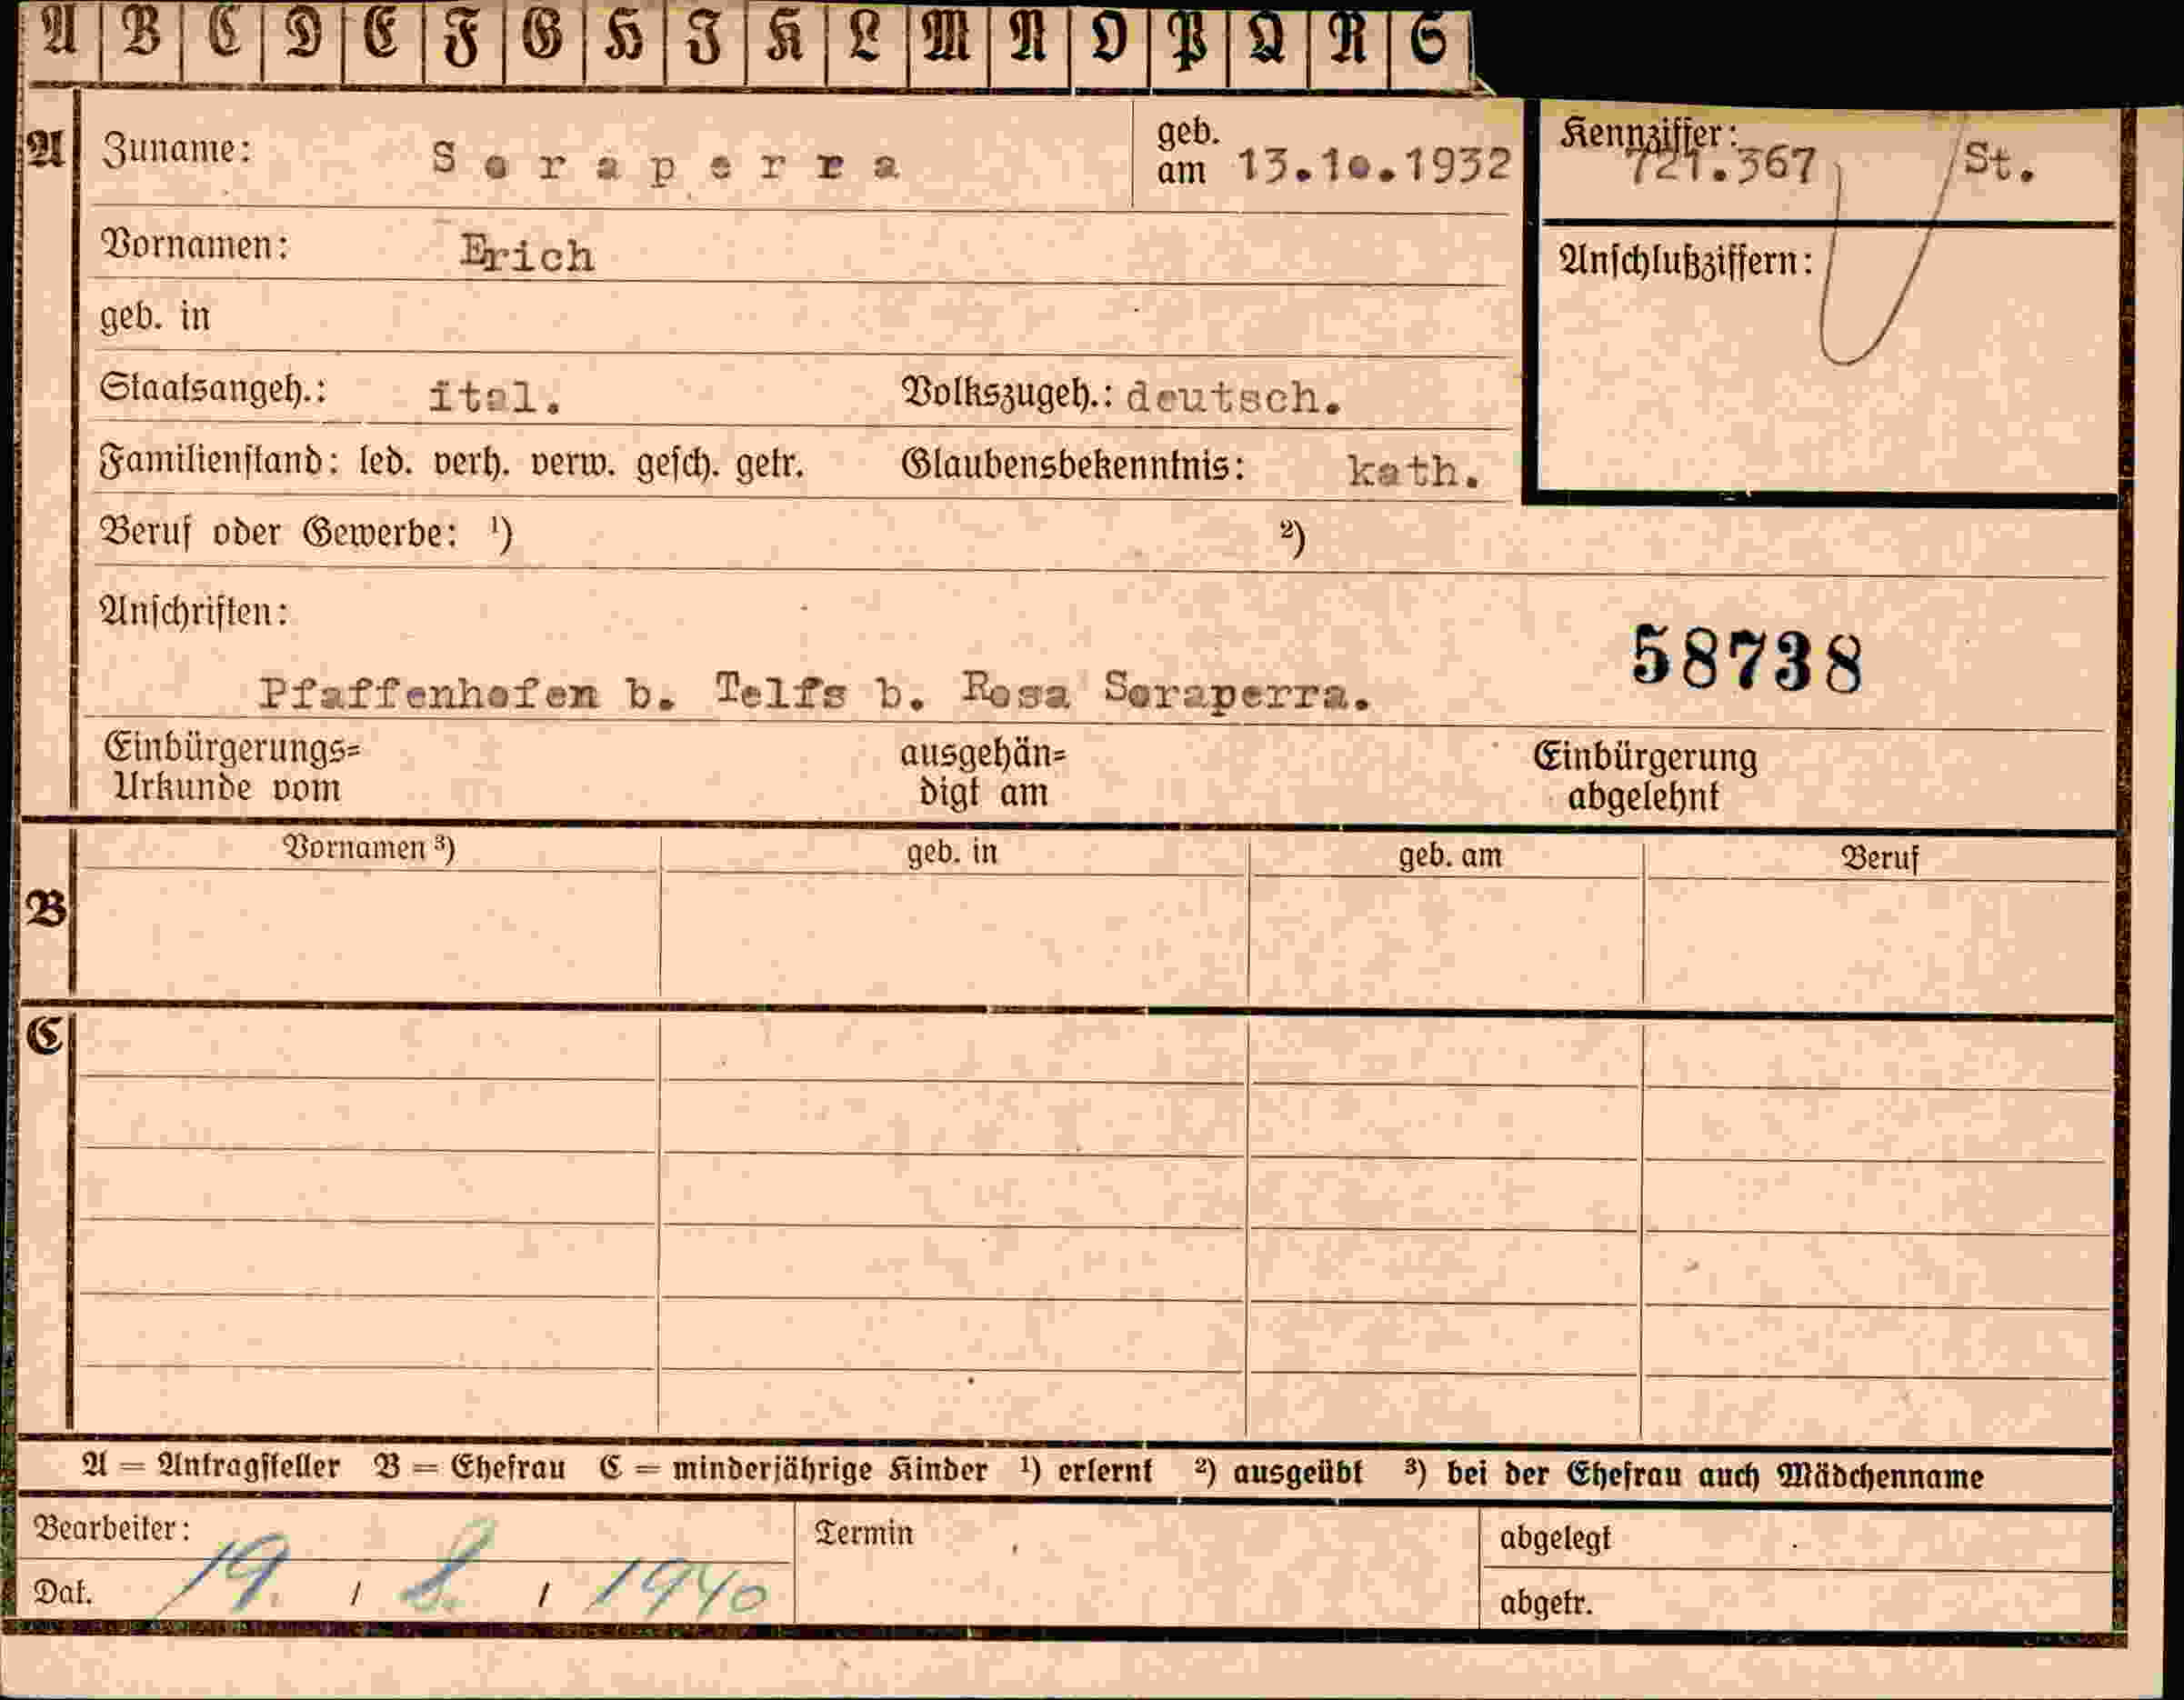 A B C D E F G H J K L M N O P Q R S
A Zuname: Soraperra geb. am 13.10.1932 Kennziffer: 721.367 /St.
Vornamen: Erich Anschlußziffern:
geb. in
Staatsangeh.: ital. Volkszugeh.: deutsch.
Familienstand: led. verh. verw. gesch. getr. Glaubensbekenntnis: kath.
Beruf oder Gewerbe: ¹) ²)
Anschriften:
58738
Pfaffenhofen b. Telfs b. Rosa Soraperra.
Einbürgerungs= ausgehän= Einbürgerung
Urkunde vom digt am abgelehnt
Vornamen ³) geb. in geb. am Beruf
B
C
A = Antragsteller B = Ehefrau C = minderjährige Kinder ¹) erlernt ²) ausgeübt ³) bei der Ehefrau auch Mädchenname
Bearbeiter: Termin abgelegt
Dat. 19. / 8. / 1940 abgetr.